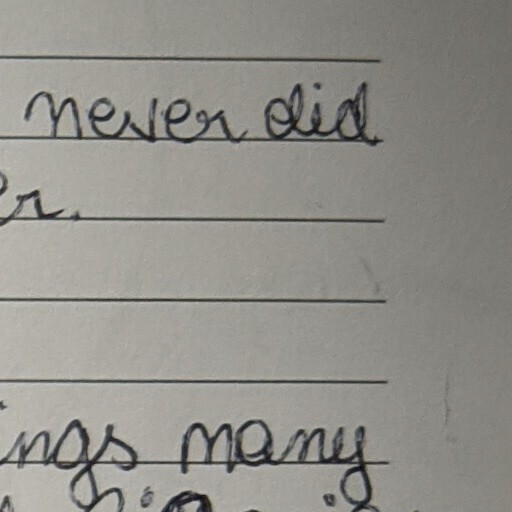 never did
er.
ings many